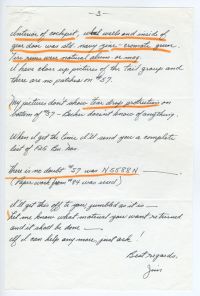 - 3 -
Interior of cockpit, wheel wells and inside of
gear door was std. navy zinc-cromate green.
rims were natural alum. or mag.
I have close up pictures of the tail group and
there are no patches on #57.
My picture don't show tear drop protrusion on
bottom of #57 - doesn't know of anything.
When I get the time I'll send you a complete
list of
There is no doubt #57 was N5588N
(Paper work from #84 was used)
I'll get this off to you, jumbled as it is —
Let me know what material you want returned
and it shall be done —
If I can help any more, just ask!
Best regards,
Jim